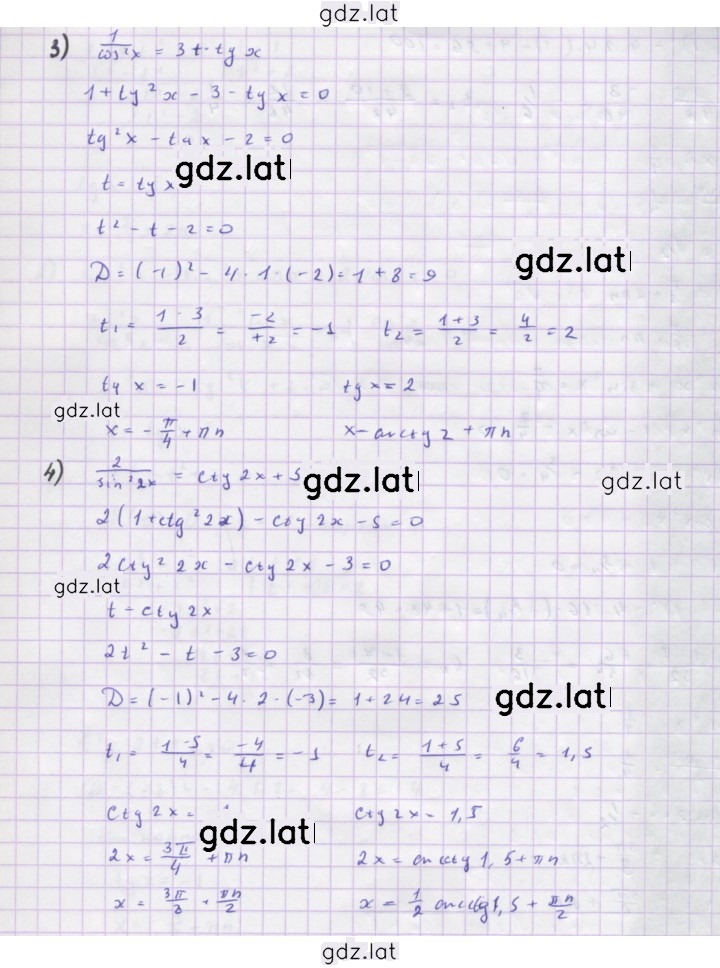 gdz.lat
3) 1/cos²x = 3 + tg x
1 + tg²x - 3 - tg x = 0
tg²x - tg x - 2 = 0
gdz.lat
t = tg x
t² - t - 2 = 0
gdz.lat
D = (-1)² - 4 · 1 · (-2) = 1 + 8 = 9
t₁ = (1 - 3)/2 = -2/+2 = -1 t₂ = (1 + 3)/2 = 4/2 = 2
tg x = -1 tg x = 2
gdz.lat
x = -π/4 + πn x - arctg 2 + πn
4) 2/sin²2x = ctg 2x + 5
gdz.lat
gdz.lat
2(1 + ctg²2x) - ctg 2x - 5 = 0
2ctg²2x - ctg 2x - 3 = 0
gdz.lat
t - ctg 2x
2t² - t - 3 = 0
D = (-1)² - 4 · 2 · (-3) = 1 + 24 = 25
gdz.lat
t₁ = (1 - 5)/4 = -4/4 = -1 t₂ = (1 + 5)/4 = 6/4 = 1,5
ctg 2x = ctg 2x - 1,5
gdz.lat
2x = 3π/4 + πn 2x = arcctg 1,5 + πn
x = 3π/8 + πn/2 x = 1/2 arcctg 1,5 + πn/2
gdz.lat